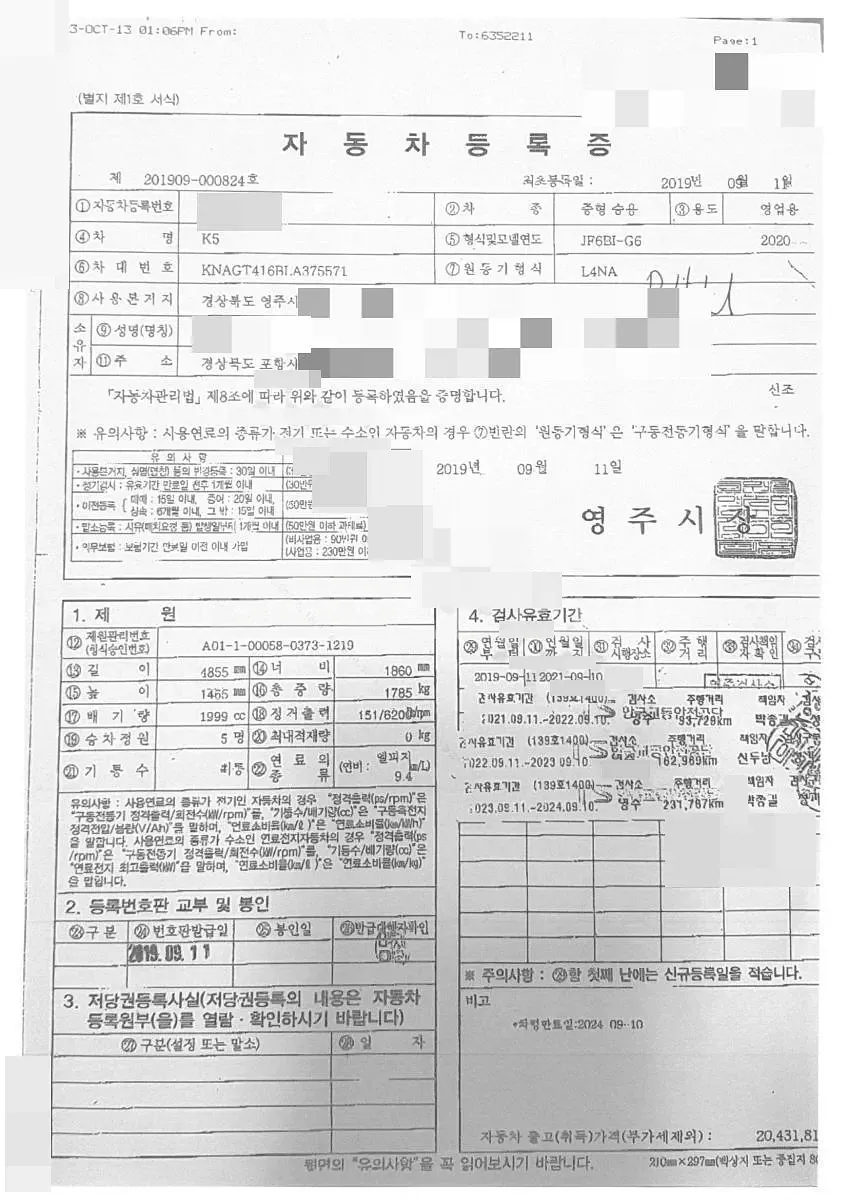 3-OCT-13 01:06PM From:
To:6352211
Page:1
(별지 제1호 서식)
자 동 차 등 록 증
제 201909-000824호
최초등록일 : 2019년 09월 11일
①자동차등록번호
②차 종 중형 승용 ③용도 영업용
④차 명 K5 ⑤형식및모델연도 JF6BI-G6 2020
⑥차 대 번 호 KNAGT416BLA375571 ⑦원동기형식 L4NA
⑧사용본거지 경상북도 영주시
소유자 ⑨성명(명칭)
⑪주 소 경상북도 포항시
「자동차관리법」 제8조에 따라 위와 같이 등록하였음을 증명합니다.
신조
※ 유의사항 : 사용연료의 종류가 전기 또는 수소인 자동차의 경우 ⑦번란의 '원동기형식'은 '구동전동기형식'을 말합니다.
유 의 사 항
·사용본거지, 성명(명칭) 등의 변경등록 : 30일 이내
·정기검사 : 유효기간 만료일 전후 1개월 이내 (30만
·이전등록 매매 : 15일 이내, 증여 : 20일 이내,
상속 : 6개월 이내, 그 밖 : 15일 이내 (50만
·말소등록 : 사유(폐차요청 등) 발생일부터 1개월 이내 (50만원 이하 과태료)
·의무보험 : 보험기간 만료일 이전 이내 가입 (비사업용 : 90만원
(사업용 : 230만원 이
2019년 09월 11일
영 주 시 장
1. 제 원
⑫제원관리번호 (형식승인번호) A01-1-00058-0373-1219
⑬길 이 4855 mm ⑭너 비 1860 mm
⑮높 이 1465 mm ⑯총 중 량 1785 kg
⑰배 기 량 1999 cc ⑱정격출력 151/6200
⑲승차정원 5 명 ⑳최대적재량 0 kg
㉑기 통 수 ㉒연료의 종류 엘피지 (연비 : 9.4 km/L)
유의사항 : 사용연료의 종류가 전기인 자동차의 경우 "정격출력(ps/rpm)"은
"구동전동기 정격출력/회전수(kW/rpm)"를, "기통수/배기량(cc)"은 "구동축전지
정격전압/용량(V/Ah)"를 말하며, "연료소비률(km/ℓ)"은 "연료소비률(km/kWh)"
을 말합니다. 사용연료의 종류가 수소인 연료전지자동차의 경우 "정격출력(ps
/rpm)"은 "구동전동기 정격출력/회전수(kW/rpm)"를, "기통수/배기량(cc)"은
"연료전지 최고출력(kW)"을 말하며, "연료소비률(km/ℓ)"은 "연료소비률(km/kg)"
을 말합니다.
2. 등록번호판 교부 및 봉인
㉓구 분 ㉔번호판발급일 ㉕봉인일 ㉖발급대행자확인
2019. 09. 11
3. 저당권등록사실(저당권등록의 내용은 자동차
등록원부(을)를 열람·확인하시기 바랍니다)
㉗구분(설정 또는 말소) ㉘일 자
4. 검사유효기간
㉙연월일부터 ㉚연월일까지 ㉛검 사 시행장소 ㉜주 행 거 리 ㉝검사책임자확인
2019-09-11 2021-09-10
검사유효기간 (139호1400) 검사소 주행거리 책임자
2021.09.11.~2022.09.10. 영주 93,729km 박종길
검사유효기간 (139호1400) 검사소 주행거리 책임자
2022.09.11.~2023.09.10. 162,969km 신두남
검사유효기간 (139호1400) 검사소 주행거리 책임자
2023.09.11.~2024.09.10. 영주 231,767km 박종길
※ 주의사항 : ㉙항 첫째 난에는 신규등록일을 적습니다.
비고
*차령만료일:2024-09-10
자동차 출고(취득)가격(부가세제외) : 20,431,81
뒷면의 "유의사항"을 꼭 읽어보시기 바랍니다.
210mm×297mm(백상지 또는 중질지 80